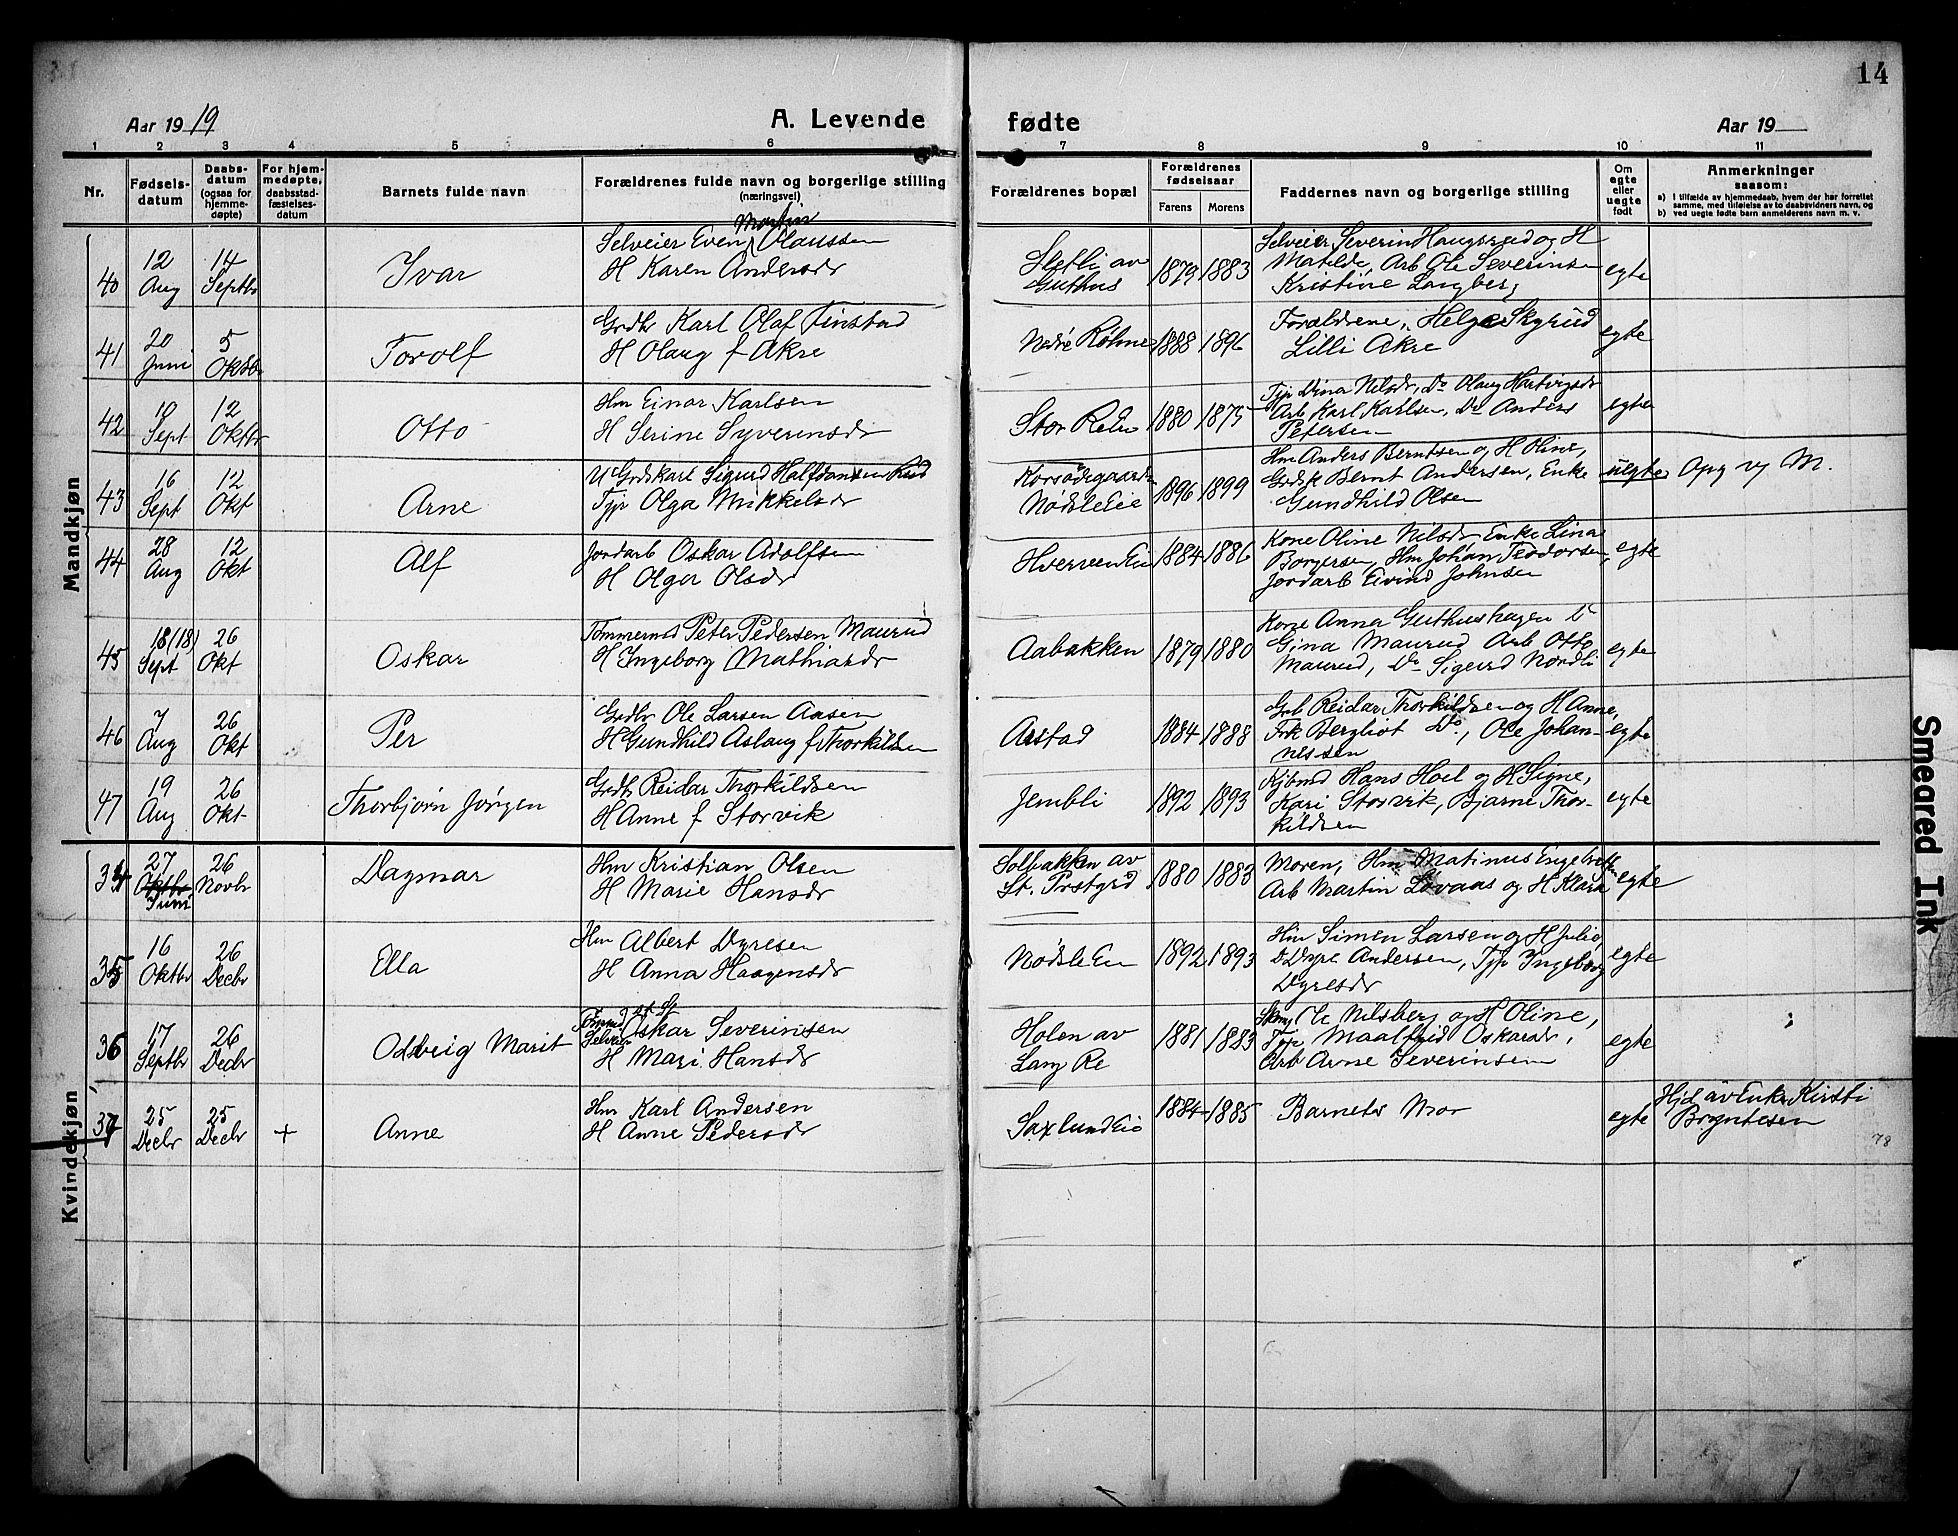 14
Aar 1919
A. Levende fødte
Aar 19
1 2 3 4 5 6 7 8 9 10 11
Nr.
Fødselsdatum
Daabsdatum
(ogsaa for hjemmedøpte)
For hjemmedøpte, daabsstadfæstelsesdatum
Barnets fulde navn
Forældrenes fulde navn og borgerlige stilling
(næringsvei)
Forældrenes bopæl
Forældrenes fødselsaar
Farens Morens
Faddernes navn og borgerlige stilling
Om egte eller uegte født
Anmerkninger
saasom:
a) I tilfælde av hjemmedaab, hvem der har forrettet samme, med tilføielse av to daabsvidners navn, og
b) ved uegte fødte barn anmelderens navn m. v.
Mandkjøn
40 12 Aug 14 Septbr Ivar
Selveier Even Martin Olaussen
H Karen Andersdr
Sletli av Guthus 1879 1883
Selveier Severin Haugsrud og H
Matilde, Arb Ole Severinsen
Kristine Langberg
egte
41 20 Juni 5 Oktbr Torolf
Grdbr Karl Olaf Finstad
H Olaug f Akre
Nedre Røhne 1888 1896
Forældrene, Helge Skyrud
Lilli Akre
egte
42 10 Sept 12 Oktbr Otto
Hm Einar Karlsen
H Serine Syverinsdr
Stor Rehn 1880 1875
Tjp Dina Nilsdr, Do Olaug Hartvigsdr
Arb Karl Karlsen, Do Anders
Petersen
egte
43 16 Sept 12 Okt Arne
U Grdskarl Sigurd Halfdansen Rud
Tjp Olga Mikkelsdr
Korsødegaarden
Nødsle Eie 1896 1899
Hm Anders Berntsen og H Oline,
Grdsk Bernt Andersen, Enke
Gundhild Olsen
uegte M.
44 28 Aug 12 Okt Alf
Jordarb Oskar Adolfsen
H Olga Olsdr
Hverven Eie 1884 1886
Kone Oline Nilsdr Enke Lina
Borgersen, Hm Johan Teodorsen,
Jordarb Eivind Johnsen
egte
45 18 (18) Sept 26 Okt Oskar
Tømmermd Peter Pedersen Maurud
H Ingeborg Mathiasdr
Aabakken 1879 1880
Kone Anna Guthushagen Do
Gina Maurud Arb Otto
Maurud, Do Sigurd Nordli
egte
46 7 Aug 26 Okt Per
Grdbr Ole Larsen Aasen
H Gundhild Aslaug f Thorkildsen
Arstad 1884 1888
Grb Reidar Thorkildsen og H Anne,
Frk Bergliot Do, Ole Johannessen
egte
47 19 Aug 26 Okt Thorbjørn Jørgen
Grdb Reidar Thorkildsen
H Anne f Storvik
Jembli 1892 1893
Kjbmd Hans Hoel og H Signe,
Kari Storvik, Bjarne Thorkildsen
egte
Kvindekjøn
34 27 Oktbr Juni 26 Novbr Dagmar
Hm Kristian Olsen
H Marie Hansdr
Solbakken av
St. Prstgrd 1880 1883
Moren, Hm Matinus Engebretsen
Arb Martin Løvaas og H Klara
egte
35 16 Oktbr 26 Decbr Ella
Hm Albert Dyresen
H Anna Haagensdr
Nødsle Eie 1892 1893
Hm Simen Larsen og H Julie,
Do Dyre Andersen, Tjp Ingeborg
Dyresdr
egte
36 17 Septbr 26 Decbr Oddveig Marit
Selveier Oskar Severinsen
H Mari Hansdr
Holen av
Lang Re 1881 1883
Ole Nilsberg og H Oline,
Tjp Maalfrid Oskarsdr,
Arb Arne Severinsen
egte
37 25 Decbr 25 Decbr + Anne
Hm Karl Andersen
H Anne Pedersdr
Saxlund Eie 1884 1885
Barnets Mor
egte
Hjd av Enke Kirsti
Bryntesen
78
Smeared Ink